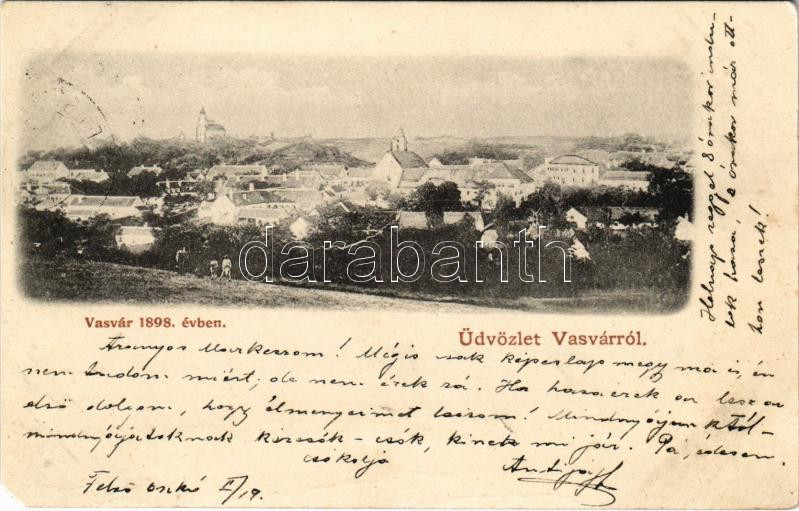 Vasvár 1898. évben.
Üdvözlet Vasvárról.
darabanth
Aranyos Markeszom! Mégis csak képeslap megy ma is, én
nem tudom miért, de nem érek rá. Ha hazaérek az lesz az
első dolgom, hogy élményeimet leírom!
mindnyájatoknak kézcsók - csók, kinek mi jár. Pá, édesem.
csókolja
Felső II/19.
Holnap reggel 8 órakor indu-
haza, órakor már ott-
hon leszek!